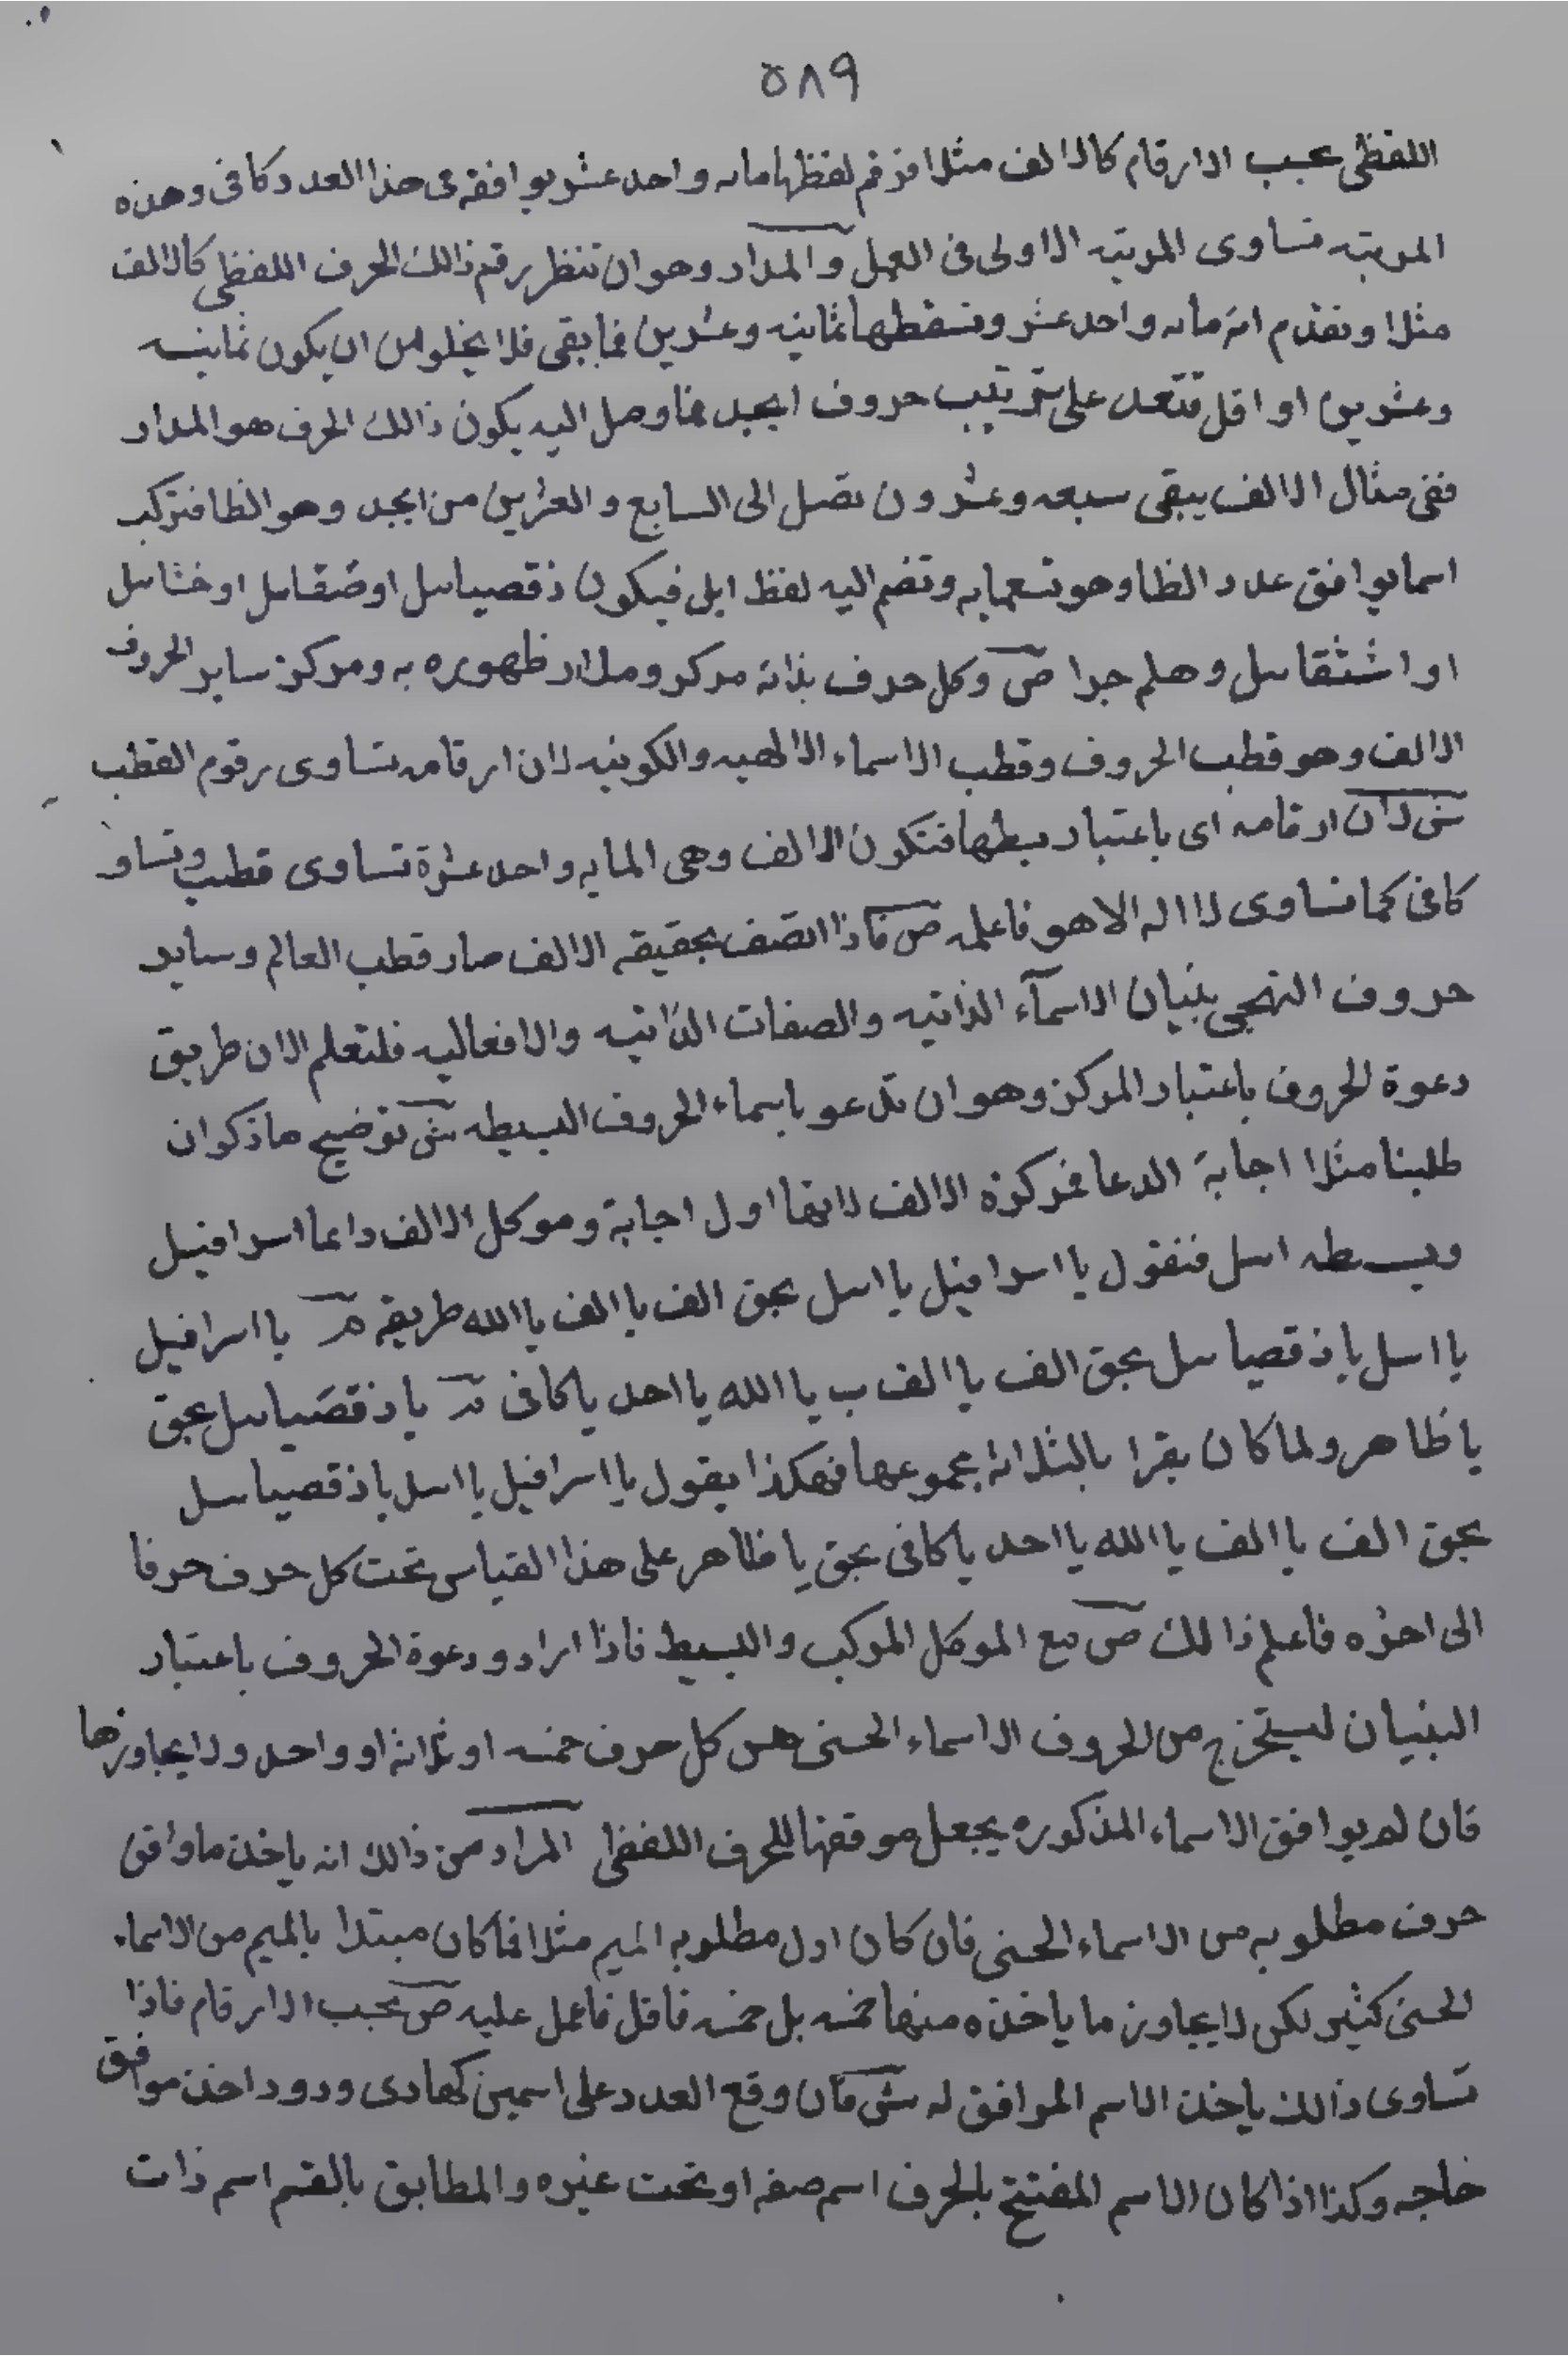 ٥٨٩
اللفظى بحسب الارقام كالالف مثلا فرقم لفظها مايه واحد عشر يوافقه فى هذا العدد كافى وهذه
المرتبه تساوى المرتبه الاولى فى العمل والمدار وهو ان تنظر رقم ذالك الحرف اللفظى كالالف
مثلا وتقدم انه مايه واحد عشر وتسقطها ثمانيه وعشرين فما بقى فلا يخلو من ان يكون ثمانيه
وعشرين او اقل فتعد على ترتيب حروف ابجد فما وصل اليه يكون ذالك الحرف هو المدار
ففى مثال الالف يبقى سبعه وعشرون تصل الى السابع والعشرين من ابجد وهو الظا فتركب
اسما يوافق عدد الظا وهو تسعمايه وتضم اليه لفظ ايل فيكون ذقصياىىل او ضقاىىل او خثاىىل
او اشثقاىىل وهلم جرا ص وكل حرف بذاته مركز ومدار ظهوره به ومركز ساير الحروف
الالف وهو قطب الحروف وقطب الاسماء الالهيه والكونيه لان ارقامه تساوى رقوم القطب
ش لان ارقامه اى باعتبار بسطها فتكون الالف وهى المايه واحد عشرة تساوى قطب وتساو
كافى كما تساوى لا اله الا هو فاعلمه ص فاذا اتصف بحقيقه الالف صار قطب العالم وساير
حروف التهجى بنيان الاسمآء الذاتيه والصفات الذاتيه والافعاليه فلتعلم الان طريق
دعوة الحروف باعتبار المركز وهو ان تدعو باسماء الحروف البسيطه ش توضيح ما ذكر ان
طلبنا مثلا اجابة الدعا فمركزه الالف لانها اول اجابة وموكل الالف دايما اسرافيل
وبسطه اىىل فتقول يا اسرافيل يا اىىل بحق الف يا الف يا الله طريقه يا اسرافيل
يا اىىل يا ذقصياىىل بحق الف يا الف ب يا الله يا احد يا كافى يا ذقصياىىل بحق
يا ظاهر ولما كان يقرا بالثلاثة بمجموعها فهكذا يقول يا اسرافيل يا اىىل يا ذقصياىىل
بحق الف يا الف يا الله يا احد يا كافى بحق يا ظاهر على هذا القياس تحت كل حرف حرفا
الى اخره فاعلم ذالك ص مع الموكل المركب والبسيط فاذا ارادو دعوة الحروف باعتبار
البنيان ليستخرج من الحروف الاسماء الحسنى من كل حرف خمسه او ثلاثة او واحد ولا يجاوزها
فان لم يوافق الاسماء المذكوره يجعل موقفها للحرف اللفظى المراد من ذالك انه ياخذ ما وافق
حرف مطلوبه من الاسماء الحسنى فان كان اول مطلوبه الميم مثلا فما كان مبتدا بالميم من الاسماء
الحسنى كثير لكن لا يجاوز ما ياخذه منها خمسه بل خمسه فاقل فاعمل عليه ص بحسب الارقام فاذا
تساوى ذالك ياخذ الاسم الموافق له ش فان وقع العدد على اسمين كهادى ودود اخذ موافق
حاجه وكذا اذا كان الاسم المفتتح بالحرف اسم صفه او تحت غيره والمطابق بالقسم اسم ذات